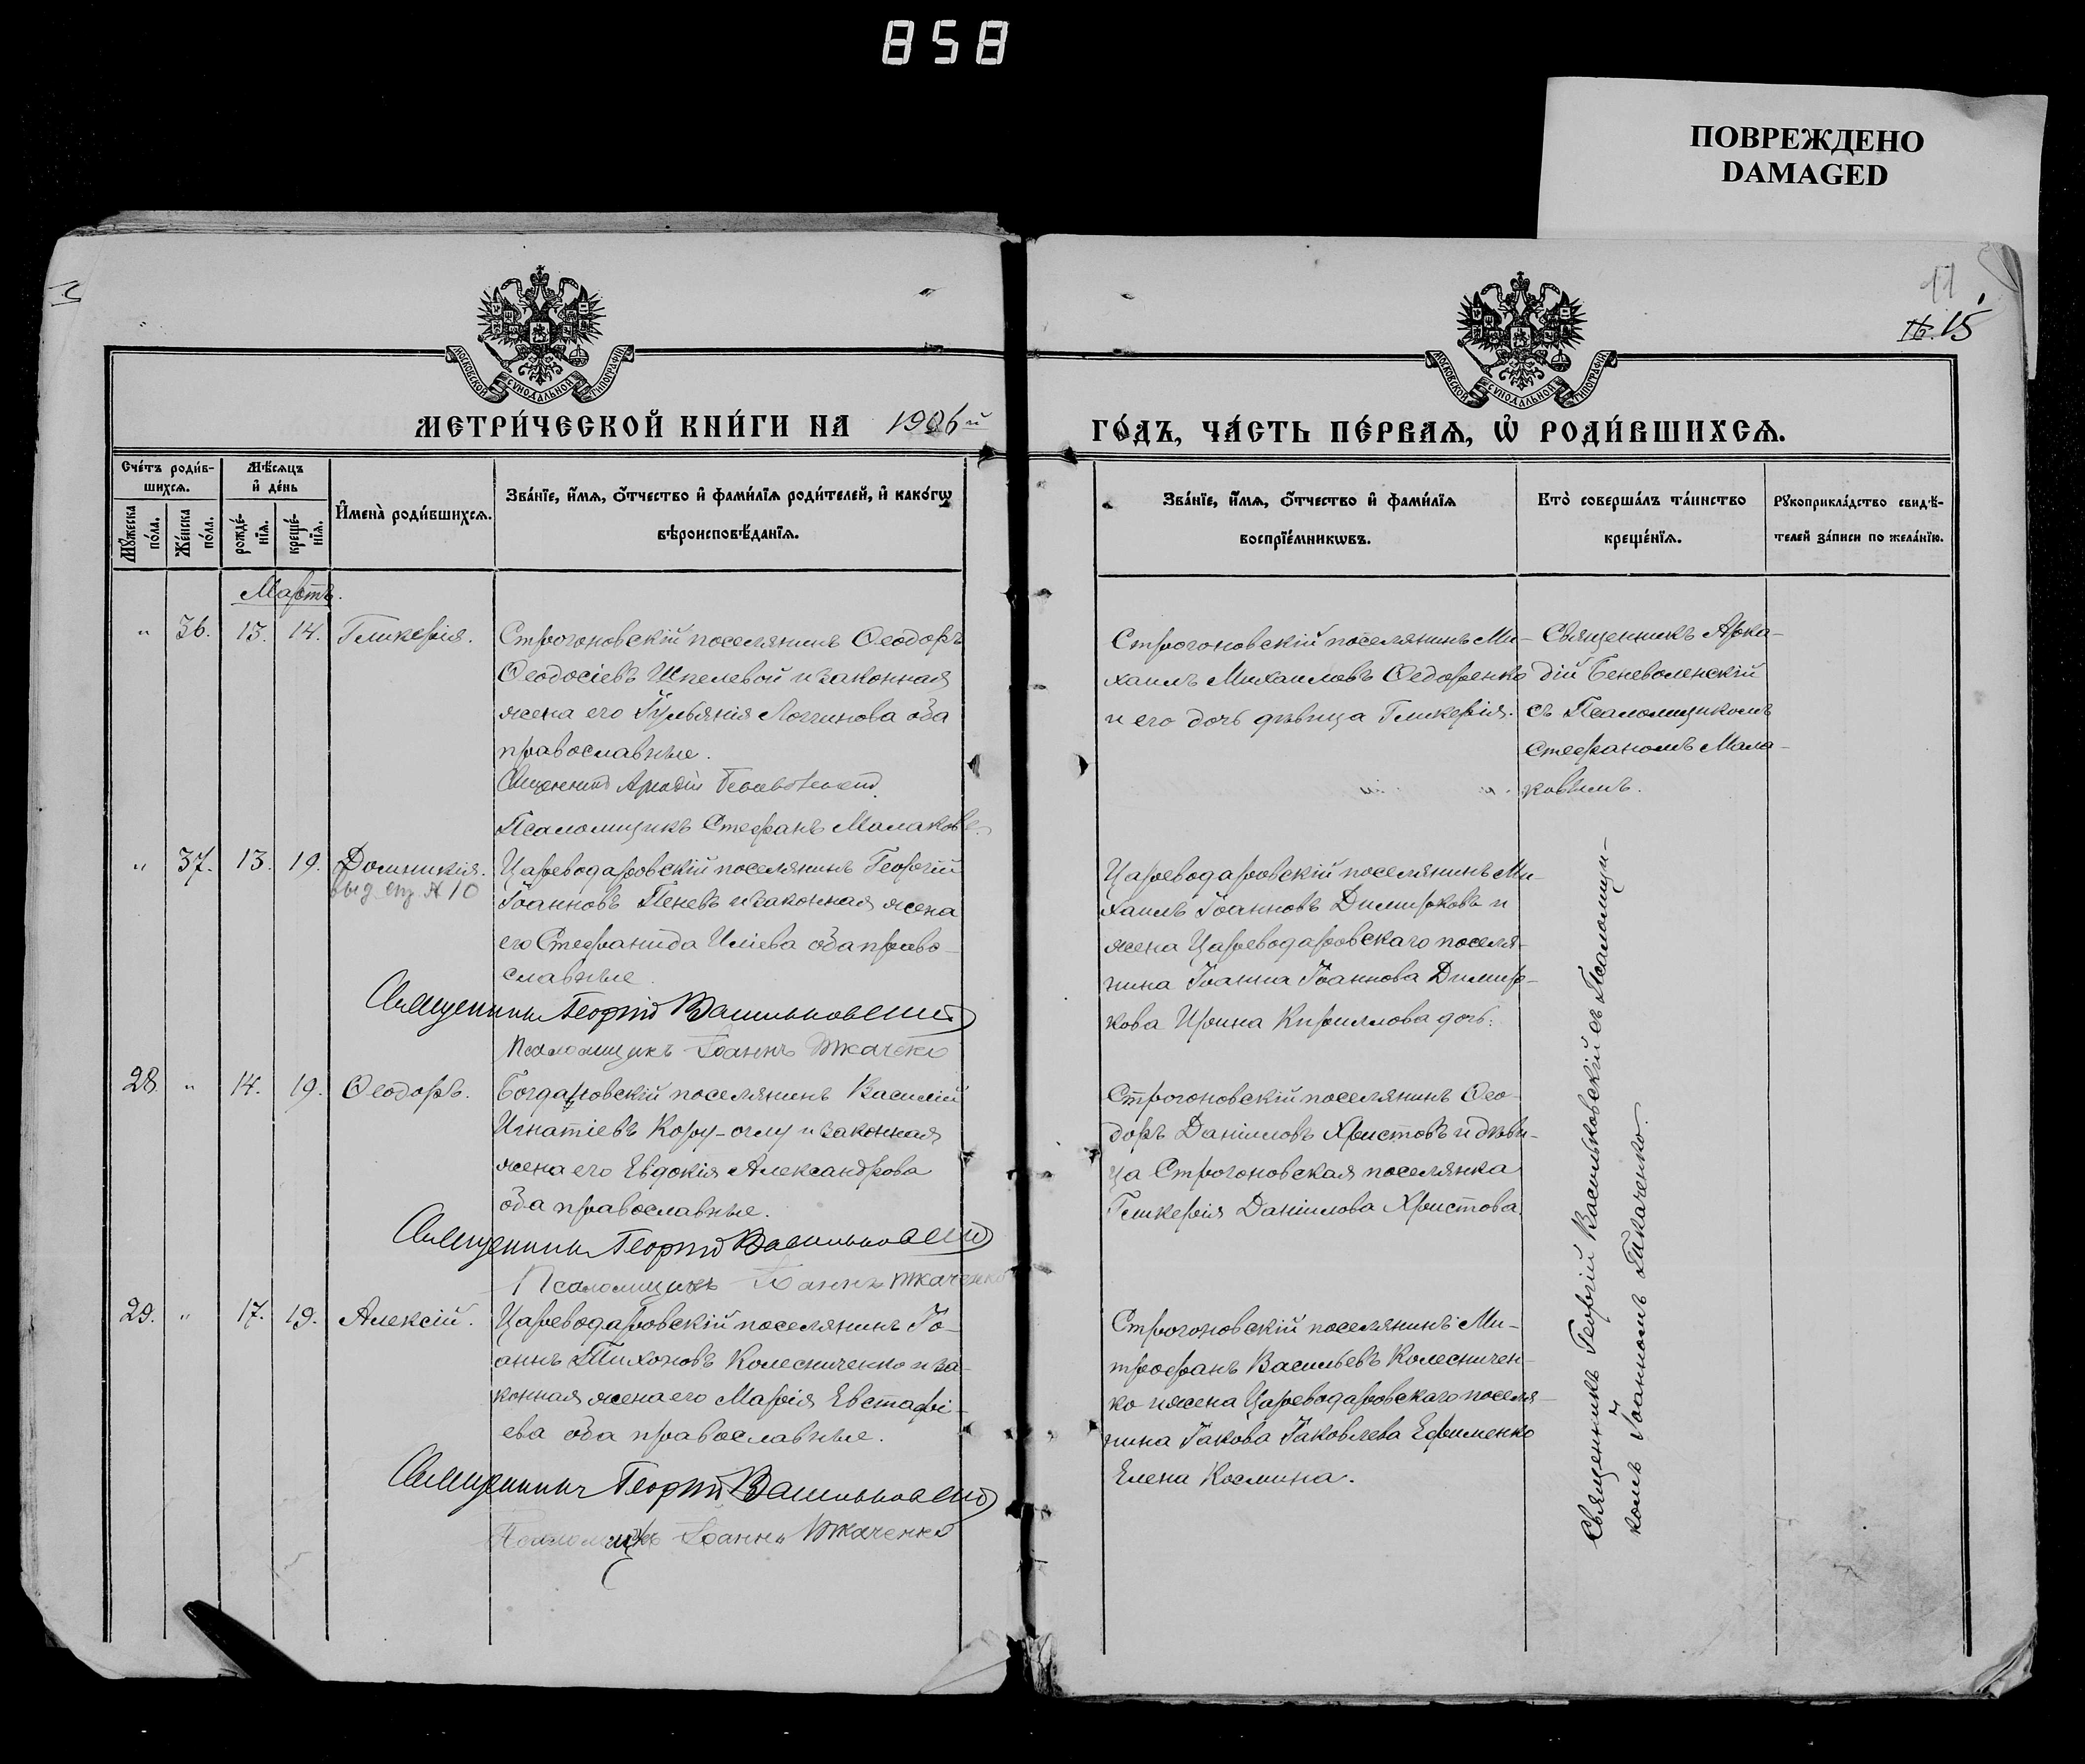 858
ПОВРЕЖДЕНО
DAMAGED
11
16. 15
МОСКОВСКОЙ СѴНОДАЛЬНОЙ ТИПОГРАФІИ
МОСКОВСКОЙ СѴНОДАЛЬНОЙ ТИПОГРАФІИ
МЕТРИ́ЧЕСКОЙ КНИ́ГИ НА 1906й
ГО́ДЪ, ЧА́СТЬ ПЕ́РВАѦ, Ѡ҆ РОДИ́ВШИХСѦ.
Сче́тъ роди́в-
шихсѧ.
Мꙋ́жеска по́ла.
Же́нска по́ла.
Мѣ́сѧцъ
и҆ де́нь
рожде́-
нїѧ.
креще́-
нїѧ.
И҆мена̀ роди́вшихсѧ.
Зва́нїе, и҆́мѧ, ѻ҆́тчество и҆ фами́лїѧ роди́телей, и҆ како́гѡ
вѣроисповѣ́данїѧ.
Зва́нїе, и҆́мѧ, ѻ҆́тчество и҆ фами́лїѧ
воспрїе́мникѡвъ.
Кто̀ соверша́лъ та́инство
креще́нїѧ.
Рꙋкоприкла́дство свидѣ́-
телей за́писи по жела́нїю.
Мартъ.
" 36. 13. 14. Гликерія.
Строгоновскій поселянинъ Ѳеодоръ
Ѳеодосіевъ Шпелевой и законная
жена его Іульянія Логгинова оба
православные.
Священникъ Аркадій Беневоленскій
Псаломщикъ Стефанъ Малаковъ.
Строгоновскій поселянинъ Ми-
хаилъ Михаиловъ Ѳедоренко
и его дочь дѣвица Гликерія.
Священникъ Арка-
дій Беневоленскій
съ Псаломщикомъ
Стефаномъ Мала-
ковымъ.
" 37. 13. 19. Домникія.
выд. № 10
Цареводаровскій поселянинъ Георгій
Іоанновъ Пеневъ и законная жена
его Стефанида Иліева оба право-
славные.
Священникъ Георгій Васильковскій
Псаломщикъ Іоаннъ Ткаченко
Цареводаровскій поселянинъ Ми-
хаилъ Іоанновъ Димирковъ и
жена Цареводаровскаго поселя-
нина Іоанна Іоаннова Димир-
кова Ирина Кириллова дочь.
28 " 14. 19. Ѳеодоръ.
Богдановскій поселянинъ Василій
Игнатіевъ Кору-оглу и законная
жена его Евдокія Александрова
оба православные.
Священникъ Георгій Васильковскій
Псаломщикъ Іоаннъ Ткаченко
Строгоновскій поселянинъ Ѳео-
доръ Даніиловъ Христовъ и дѣви-
ца Строгоновская поселянка
Гликерія Даніилова Христова.
29. " 17. 19. Алексій.
Цареводаровскій поселянинъ Іо-
аннъ Тихоновъ Колесниченко и за-
конная жена его Марія Евстафі-
ева оба православные.
Священникъ Георгій Васильковскій
Псаломщикъ Іоаннъ Ткаченко
Строгоновскій поселянинъ Ми-
трофанъ Васильевъ Колесничен-
ко и жена Цареводаровскаго поселя-
нина Іакова Іаковлева Ефименко
Елена Космина.
Священникъ Георгій Васильковскій съ Псаломщи-
комъ Іоанномъ Ткаченко.